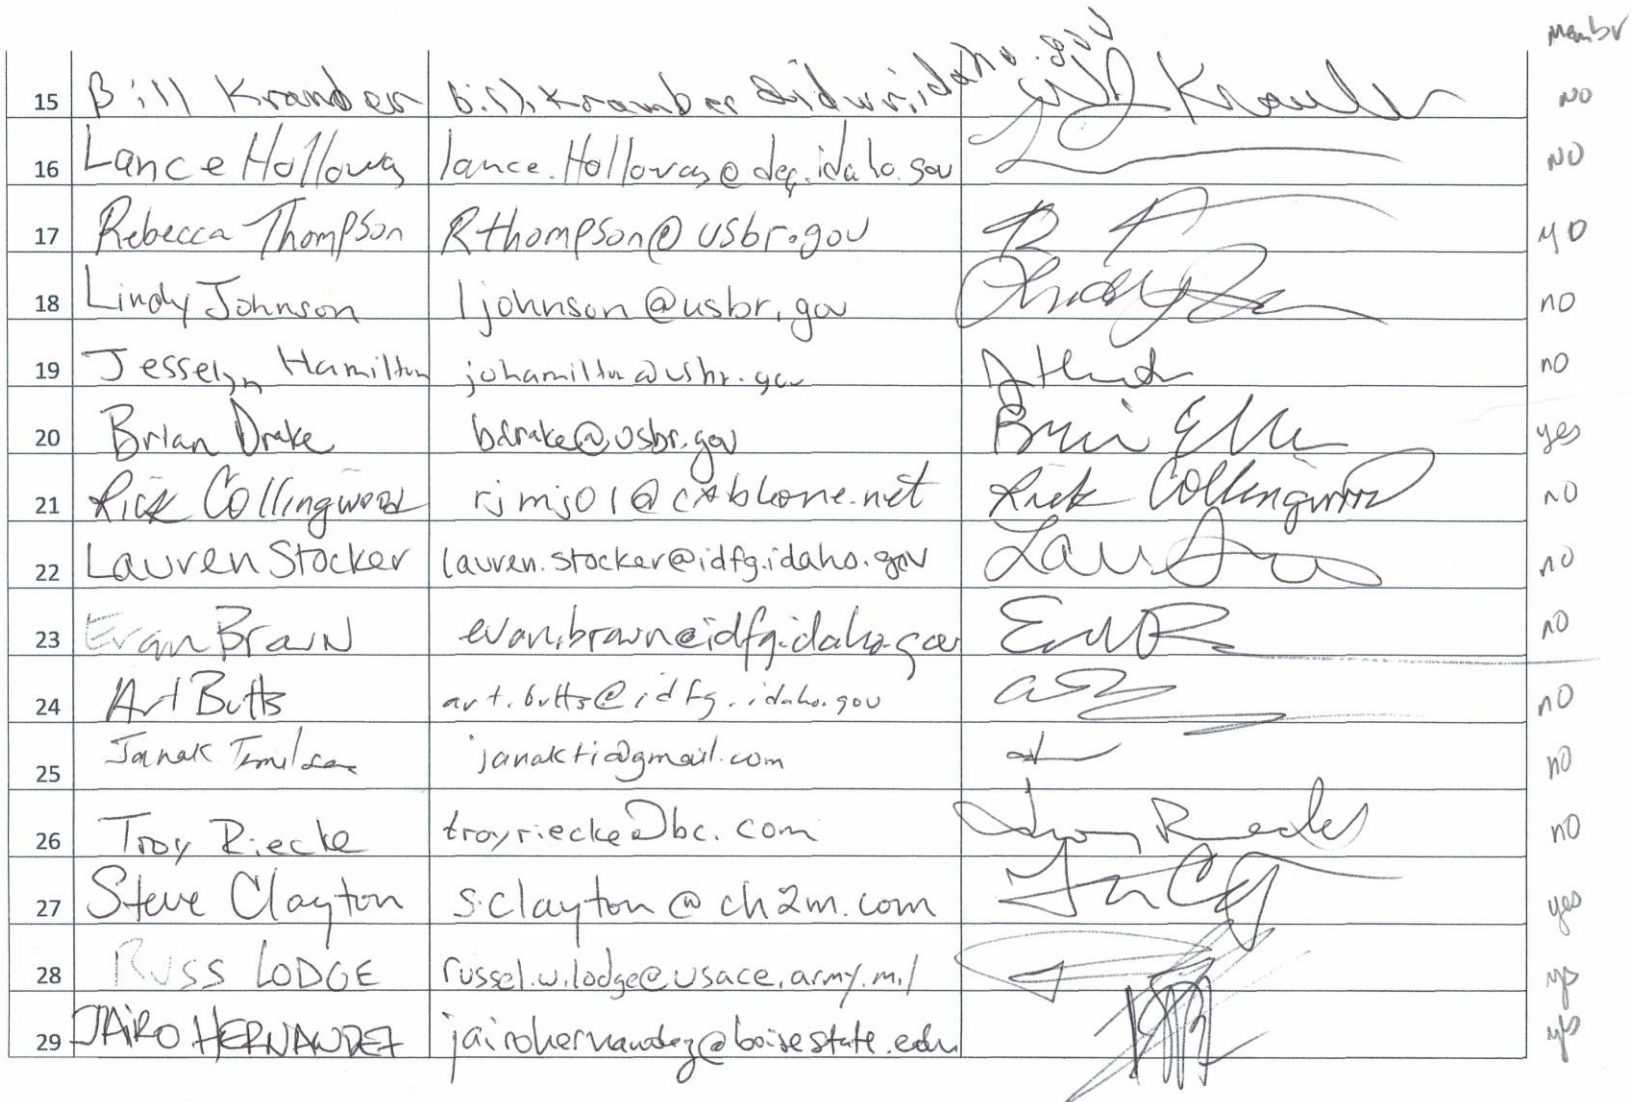 Membr
15 Bill Kramber bill.kramber@idwr.idaho.gov NO
16 Lance Holloway lance.Holloway@deq.idaho.gov NO
17 Rebecca Thompson Rthompson@usbr.gov
18 Lindy Johnson ljohnson@usbr.gov no
19 Jesselyn Hamilton johamilton@usbr.gov no
20 Brian Drake bdrake@usbr.gov yes
21 Rick Collingwood rjmj01@cableone.net Rick Collingwood no
22 Lauren Stocker lauren.stocker@idfg.idaho.gov no
23 Evan Brown evan.brown@idfg.idaho.gov no
24 Art Butts art.butts@idfg.idaho.gov no
25 Janak janakti@gmail.com no
26 Troy Riecke troyriecke@bc.com no
27 Steve Clayton s.clayton@ch2m.com yes
28 RUSS LODGE russel.w.lodge@usace.army.mil yes
29 JAIRO HERNANDEZ jairohernandez@boisestate.edu yes